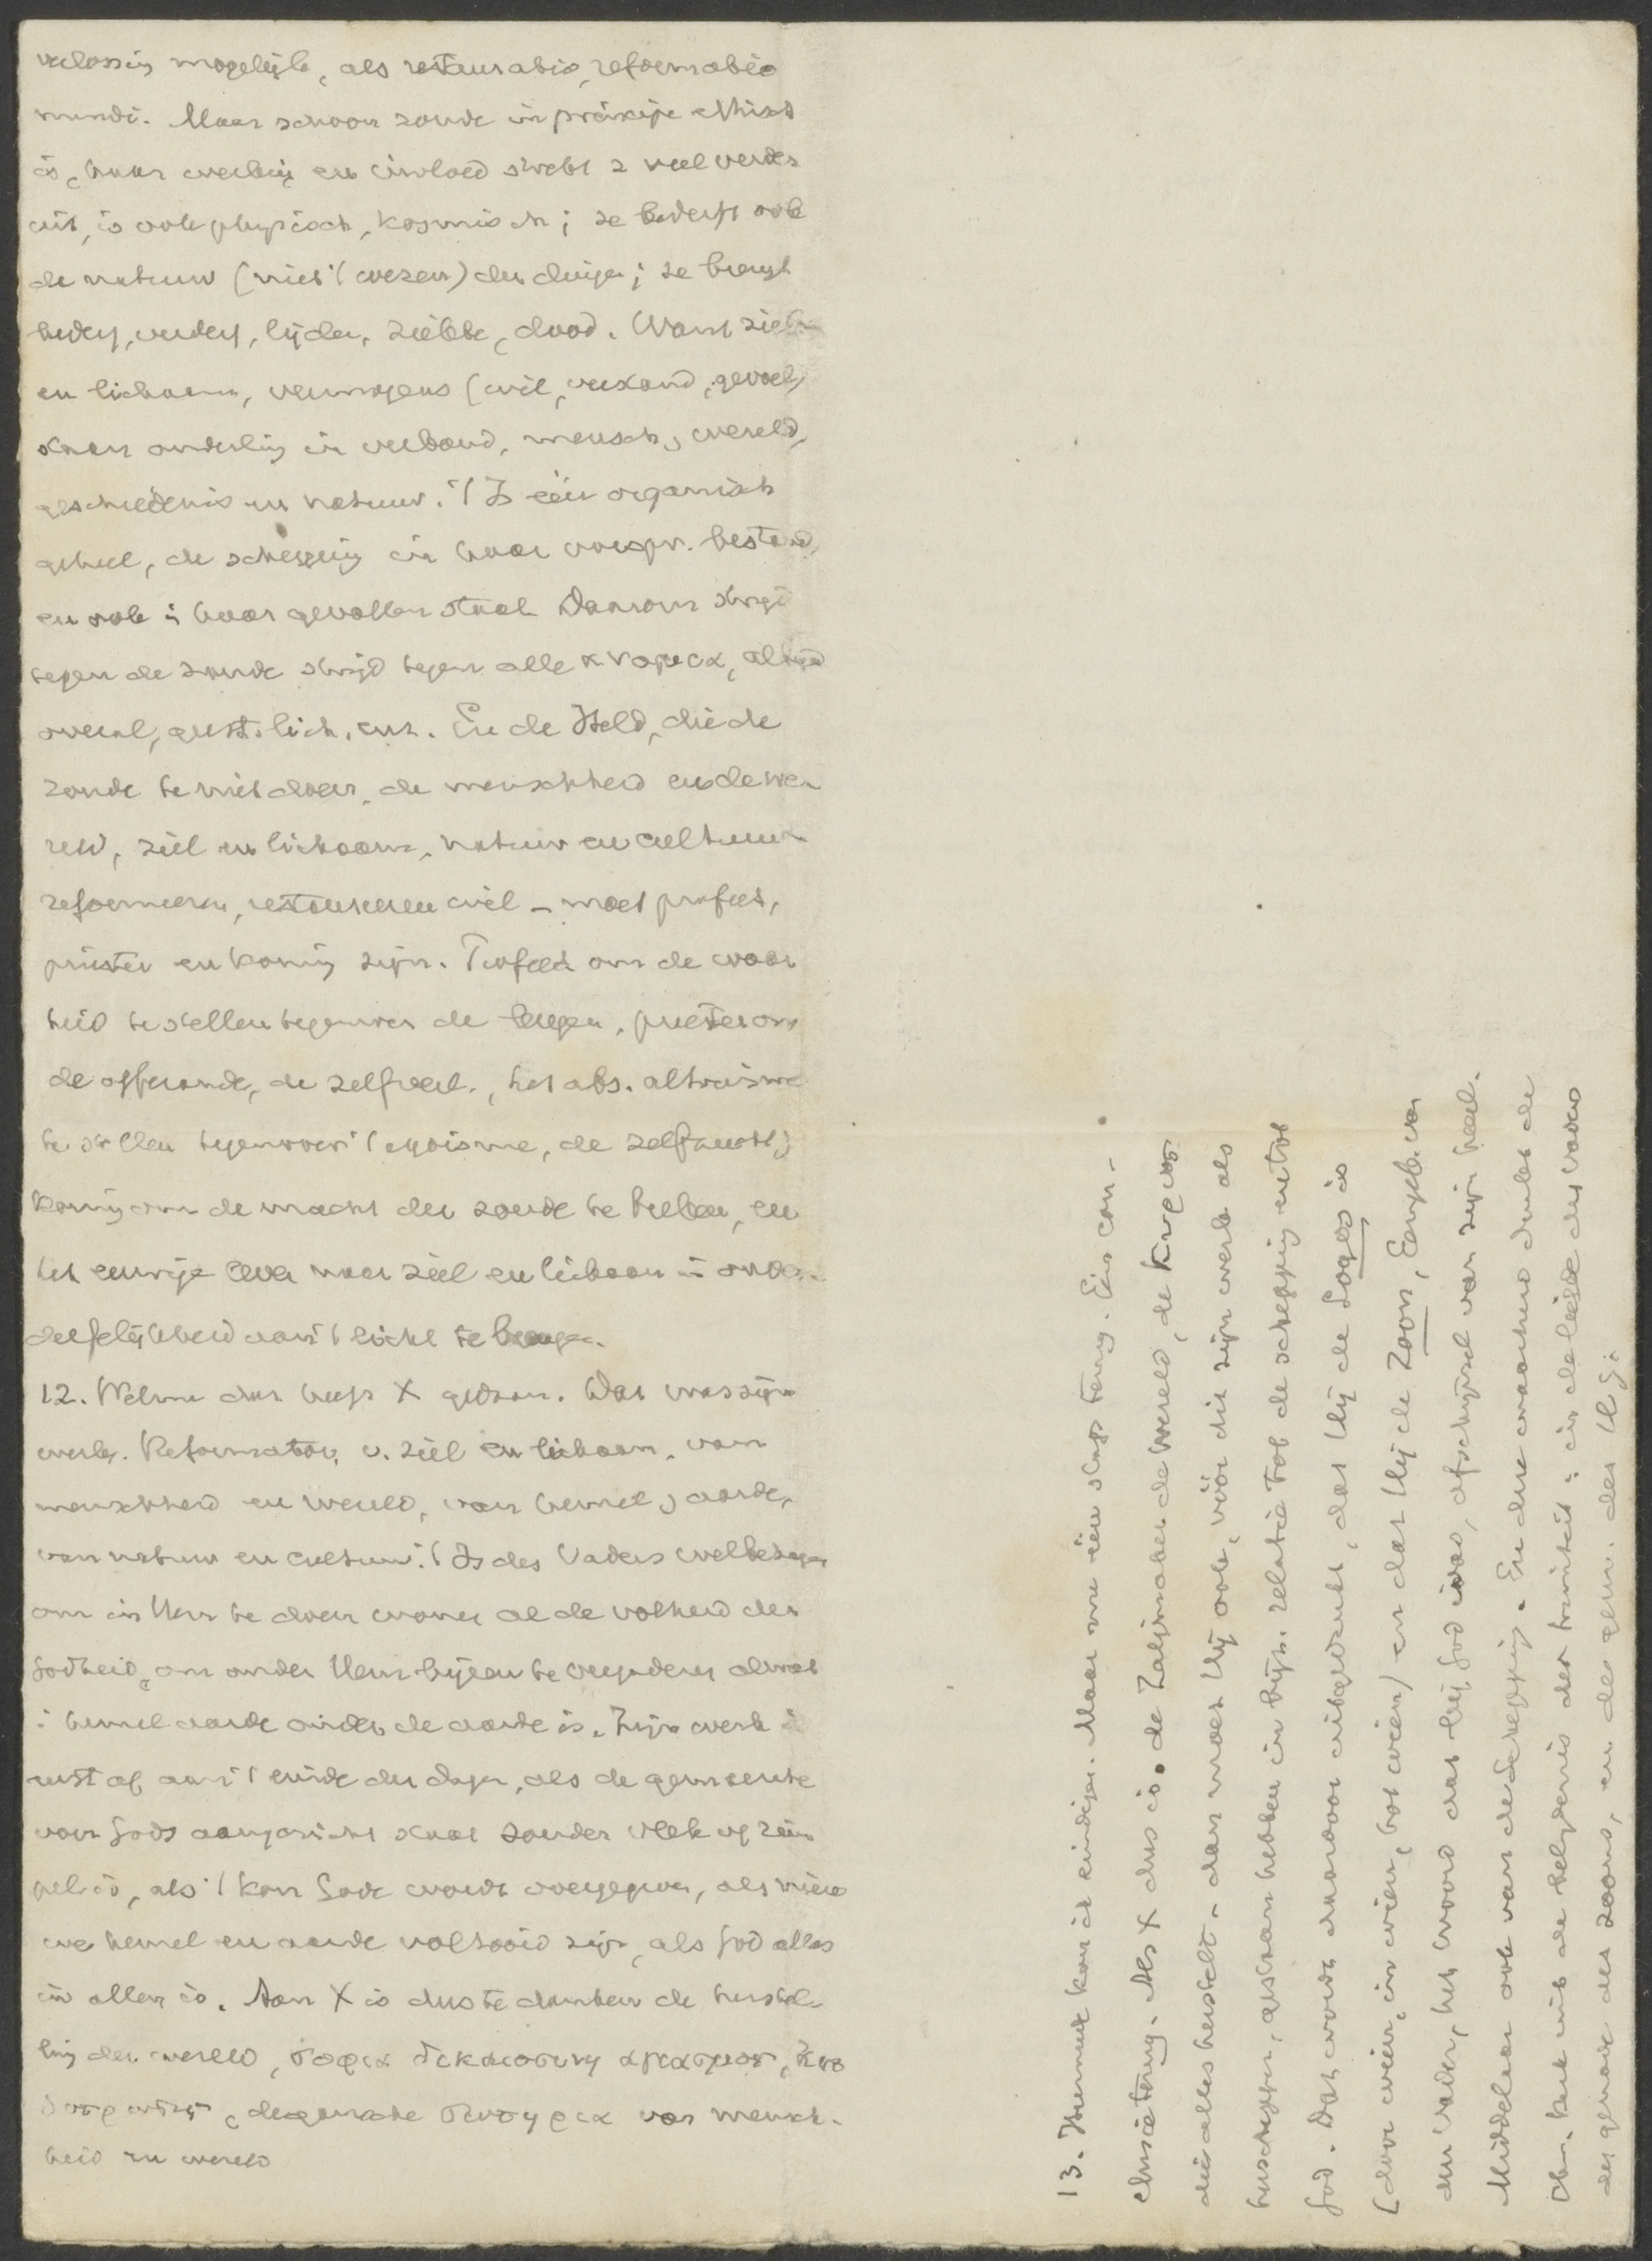 verlossing mogelijk, als restauratio, reformatio
mundi. Maar schoon zonde in principe ethisch
is, haar werking en invloed strekt z veel verder
uit, is ook physisch, kosmisch; ze bederft ook
de natuur (niet 't wezen) der dingen; ze brengt
bederf, verderf, lijden, ziekte, dood. Want ziel
en lichaam, vermogens (wil, verstand, gevoel)
staan onderling in verband, mensch, wereld,
geschiedenis en natuur. 't Is één organisch
geheel, de schepping in haar oorspr. bestand,
en ook i haar gevallen staat. Daarom strijd
tegen de zonde strijd tegen alle ανομια, altijd
overal, geest. lich. enz. En de Held, die de
zonde te niet doen, de menschheid en de we-
reld, ziel en lichaam, natuur en cultuur
reformeeren, restaureeren wil – moet profeet,
priester en koning zijn. Profeet om de waar
heid te stellen tegenover de leugen, priester om
de offerande, de zelfverl., het abs. altruisme
te stellen tegenover 't egoisme, de zelfzucht;
koning om de macht der zonde te breken, en
het eeuwige leven voor ziel en lichaam in onver-
derfelijkheid aan 't licht te brengen.
12. Welnu dat heeft X gedaan. Dat was zijn
werk. Reformator v. ziel en lichaam, van
menschheid en wereld, van hemel, aarde,
van natuur en cultuur. 't Is des Vaders welbehagen
om in Hem te doen wonen al de volheid der
Godheid, om onder Hem bijeen te vergaderen al wat
i hemel aarde onder de aarde is. Zijn werk is
eerst af aan 't einde der dagen, als de gemeente
voor Gods aangezicht staat zonder vlek of rim
pel is, als 't kon. Gode wordt overgegeven, als nieu
we hemel en aarde voltooid zijn, als God alles
in allen is. Aan X is dus te danken de herstel-
ling der wereld,
degenade van mensch-
heid en wereld
13. Hiermede kon ik eindigen. Maar nu één stap terug. Eén con-
clusie terug. Als X dus is de Zaligmaker der wereld, de
die alles herstelt – dan moet Hij ook, vóór dit zijn werk als
herschepper, gestaan hebben in bijz. relatie tot de schepping en tot
God. Dat wordt daardoor uitgedrukt, dat Hij de Logos is
(door wien, in wien, tot wien) en dat Hij de Zoon, Eengeb. van
den Vader, het woord dat bij God was, afschijnsel van zijn heerl.
Middelaar ook van de Schepping. En deze waarheid drukt de
Chr. kerk uit de belijdenis der triniteit: in de liefde des Vaders
de genade des Zoons, en de gem. des H.G.